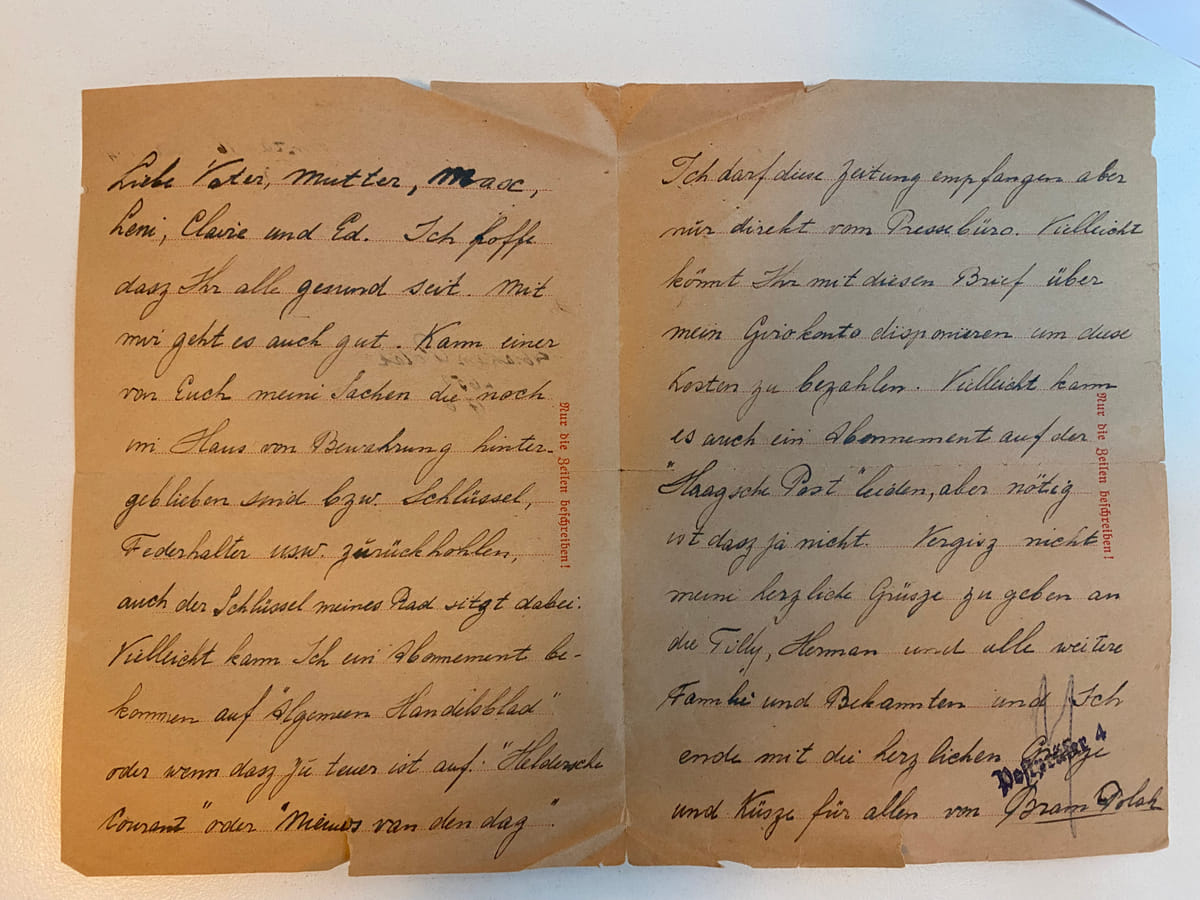 Liebe Vater, Mutter, Max,
Leni, Claire und Ed. Ich hoffe
dasz Ihr alle gesund seit. Mit
mir geht es auch gut. Kann einer
von Euch meine Sachen die noch
im Haus von Bewahrung hinter-
geblieben sind bzw. Schlüssel,
Federhalter usw. zurückhohlen,
auch der Schlüssel meines Rad sitzt dabei.
Vielleicht kann Ich ein Abonnement be-
kommen auf "Algemeen Handelsblad"
oder wenn dasz zu teuer ist auf: "Heldersche
Courant" oder "Nieuws van den dag".
Nur die Zeilen beschreiben!
Ich darf diese Zeitung empfangen aber
nur direkt vom Pressebüro. Vielleicht
könnt Ihr mit diesen Brief über
mein Girokonto disponieren um diese
Kosten zu bezahlen. Vielleicht kann
es auch ein Abonnement auf der
"Haagsche Post" leiden, aber nötig
ist dasz ja nicht. Vergisz nicht
meine herzliche Grüsze zu geben an
die Tilly, Herman und alle weitere
Familie und Bekannten und Ich
ende mit die herzlichen Grüsze
und Küsze für allen von Bram Polak
Nur die Zeilen beschreiben!
Postprüfer 4